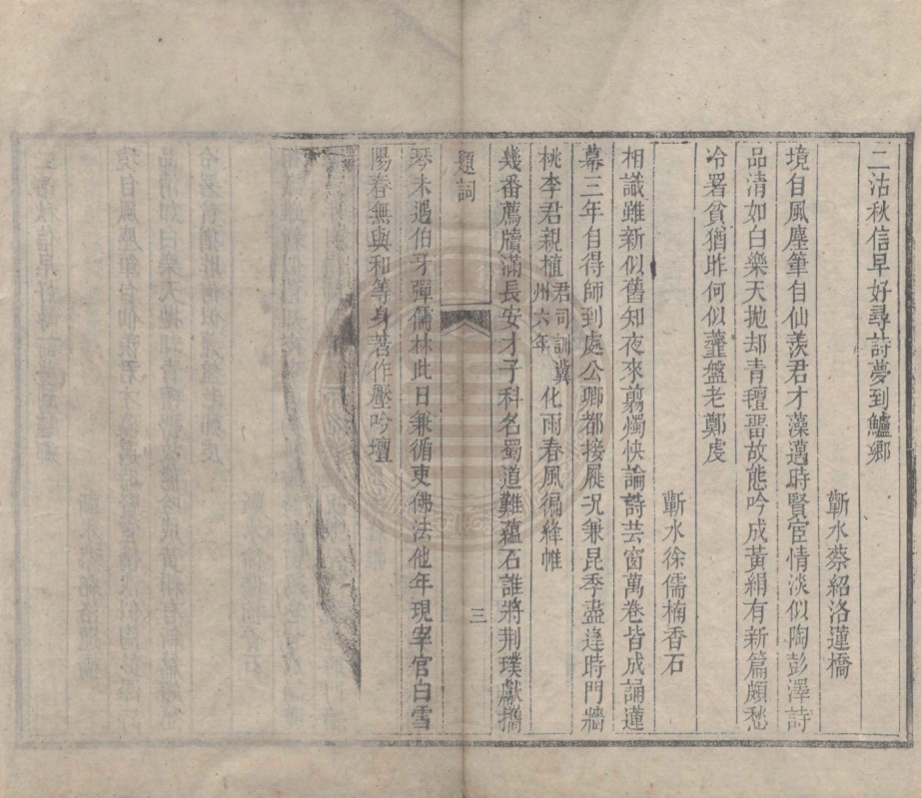 二沽秋信早好尋詩夢到鱸鄉
蘄水蔡紹洛蓮橋
境自風塵筆自仙羨君才藻邁時賢宦情淡似陶彭澤詩
品清如白樂天拋却青氊畱故態吟成黃絹有新篇頗愁
冷署貧猶昨何似虀盤老鄭虔
蘄水徐儒楠香石
相識雖新似舊知夜來剪燭快論詩芸窗萬卷皆成誦蓮
幕三年自得師到處公卿都接屣況兼昆季盡逢時門牆
桃李君親植君司訓冀州六年化雨春風徧絳帷
幾番薦牘滿長安才子科名蜀道難蘊石誰將荆璞獻攜
題詞
三
琴未遇伯牙彈儒林此日兼循吏佛法他年現宰官白雪
陽春無與和等身著作壓吟壇